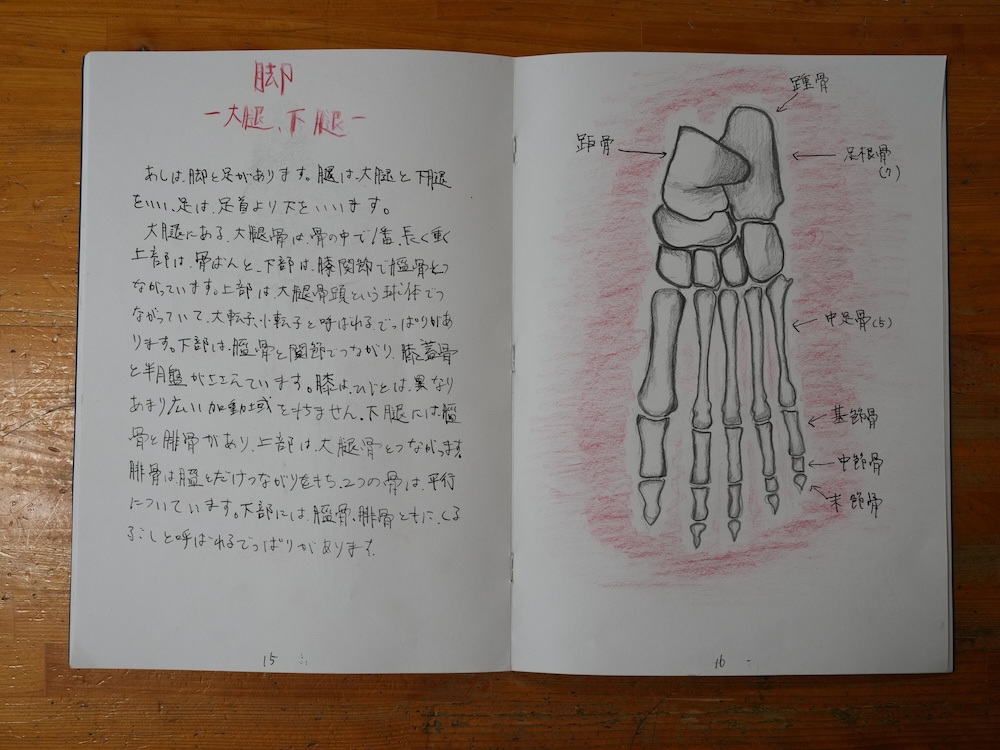 脚
－大腿、下腿－
あしは、脚と足があります。腿は、大腿と下腿
をいい、足は、足首より下をいいます。
大腿にある、大腿骨は、骨の中で1番、長く重く
上部は、骨ばんと、下部は、膝関節で脛骨とつ
ながっています。上部は、大腿骨頭という球体でつ
ながっていて、大転子、小転子と呼ばれる、でっぱりがあ
ります。下部は、脛骨と関節でつながり、膝蓋骨
と半月盤がささえています。膝は、ひじとは、異なり
あまり広い可動域をもちません。下腿には脛
骨と腓骨があり、上部は、大腿骨とつながます。
腓骨は、脛とだけつながりをもち、2つの骨は、平行
についています。下部には、脛骨、腓骨ともに、くる
ぶしと呼ばれるでっぱりがあります。
15
踵骨
距骨
足根骨
(7)
中足骨(5)
基節骨
中節骨
末節骨
16